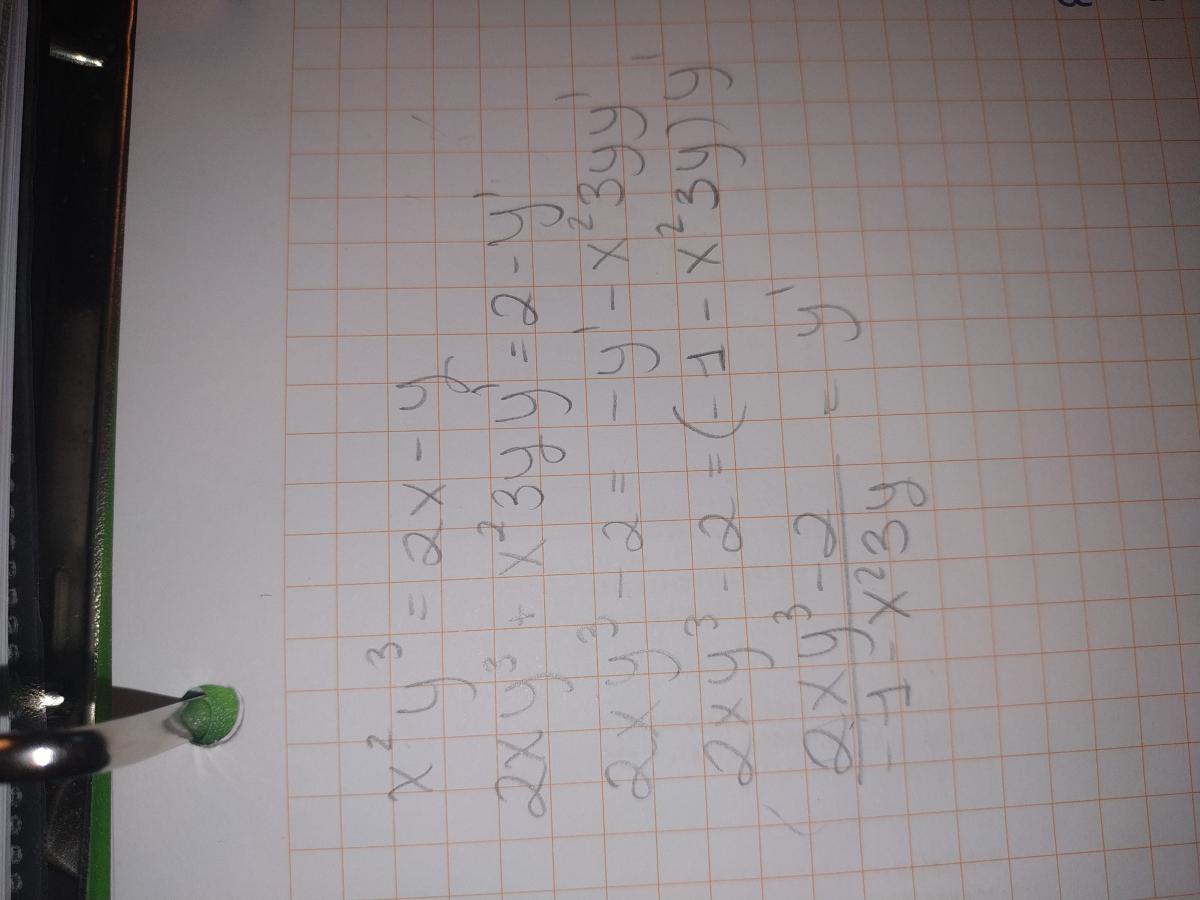 x² y³ = 2x - y
2xy³ + x² 3y y' = 2 - y'
2xy³ - 2 = - y' - x² 3y y'
2xy³ - 2 = (-1 - x² 3y) y'
2xy³ - 2 / -1 - x² 3y = y'